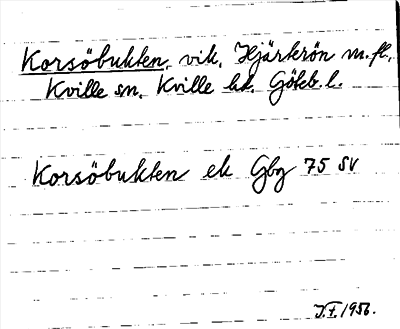 Korsöbukten, vik, Hjärterön m.fl.,
Kville sn, Kville hd, Göteb. l.
Korsöbukten ek Gbg 75 SV
J.F. 1956.